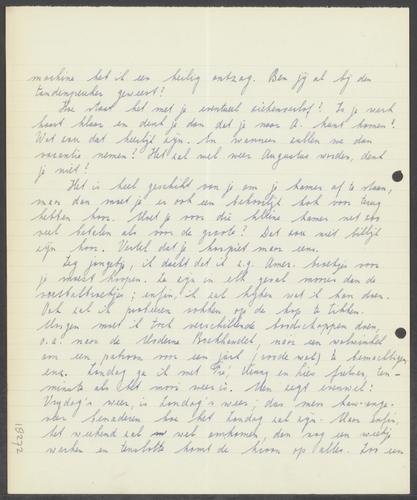 machine heb ik een heilig ontzag. Ben jij al bij den
tandenspreker geweest?
Hoe staat het met je eventueel ziekenverlof? Is je werk
haast klaar en denk je dan dat je naar A. kunt komen?
Wat zou dat heerlijk zijn. En wanneer zullen we dan
vacantie nemen? Het zal wel weer Augustus worden, denk
je niet?
Het is heel geschikt van je om je kamer af te staan,
maar dan moet je er ook een behoorlijk hok voor terug
hebben hoor. Moet je voor die kleine kamer net zoo
veel betalen als voor de groote? Dat zou niet billijk
zijn hoor. Vertel dat je hospita maar eens.
Zeg jongetje, ik dacht dat ik z.g. Amer. broekjes voor
je moest koopen. Ze zijn in elk geval mooier dan de
voetbalbroekjes; enfin ik zal kijken wat ik kan doen.
Ook zal ik probeeren sokken op de kop te tikken.
Morgen moet ik toch verschillende boodschappen doen,
o.a. naar de Moderne Boekhandel, naar een wolwinkel
om een patroon voor een jurk (roode wol) te bemachtigen
enz. Zondag ga ik met en hier fietsen, ten-
minste als het mooi weer is. Men zegt evenwel:
Vrijdag's weer, is Zondag's weer; dus men kan onge-
veer benaderen hoe het Zondag zal zijn. Maar enfin,
het weekend zal wel omkomen, dan nog een weekje
werken en tenslotte komt de kroon op alles. Zoo een
18272